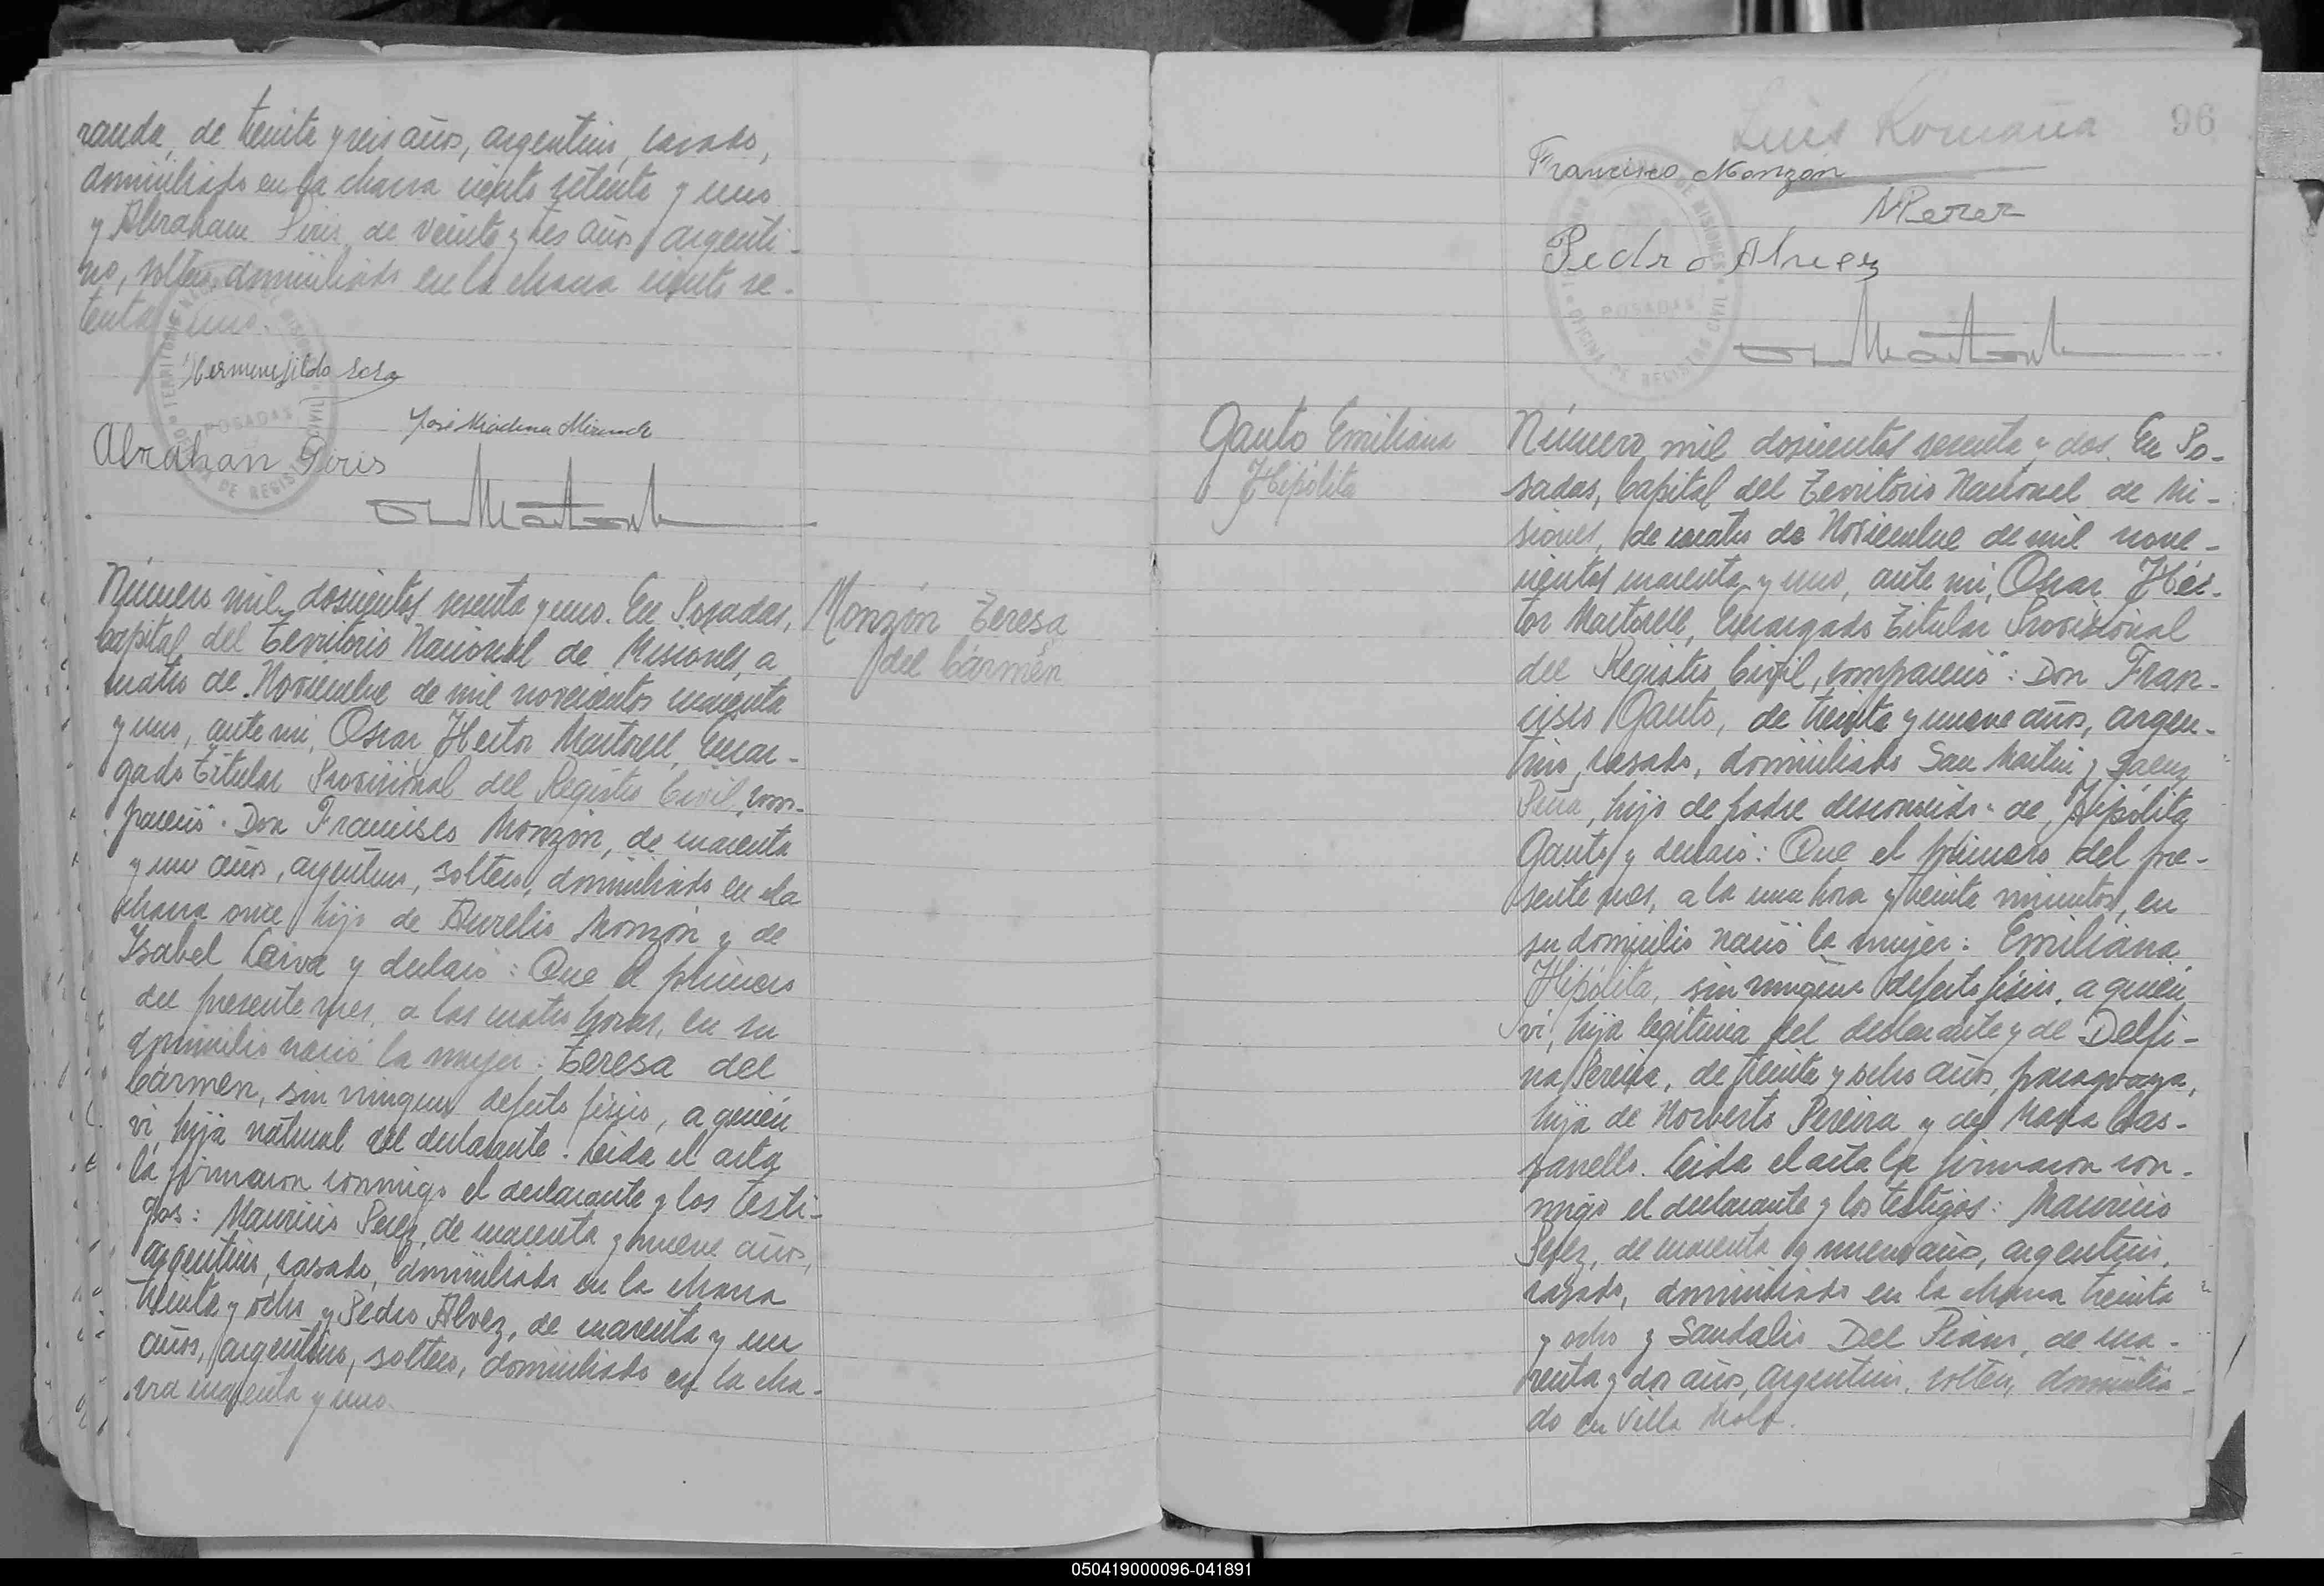 randa, de treinta y seis años, argentino, casado,
domiciliado en la chacra ciento setenta y uno
y Abraham Piris, de veinte y tres años, argenti-
no, soltero, domiciliado en la chacra ciento se-
tenta y uno.
Hermenejildo Sosa
José Medina Miranda
Abrahan Piris
POSADAS
Número mil doscientos sesenta y uno. En Posadas,
Capital del Territorio Nacional de Misiones, a
cuatro de Noviembre de mil novecientos cuarenta
y uno, ante mi, Oscar Hector Martorell, Encar-
gado Titular Provisional del Registro Civil, com-
pareció: Don Francisco Monzón, de cuarenta
y un años, argentino, soltero, domiciliado en la
chacra once, hijo de Aurelio Monzón y de
Isabel y declaró: Que el primero
del presente mes, a las cuatro horas, en su
domicilio nació la mujer: Teresa del
Cármen, sin ningun defecto físico, a quién
vi, hija natural del declarante. Leida el acta
la firmaron conmigo el declarante y los testi-
gos: Mauricio Perez, de cuarenta y nueve años,
argentino, casado, domiciliado en la chacra
treinta y ocho y Pedro Alvez, de cuarenta y un
años, argentino, soltero, domiciliado en la cha-
cra cuarenta y uno.
Monzón Teresa
del Cármen
Luis Romaña
96
Francisco Monzón
MPerez
Pedro Alvez
OFICINA DE REGISTRO CIVIL
POSADAS
Gauto Emiliana
Hipólita
Número mil doscientos sesenta y dos. En Po-
sadas, Capital del Territorio Nacional de Mi-
siones, de cuatro de Noviembre de mil nove-
cientos cuarenta y uno, ante mi, Oscar Héc-
tor Martorell, Encargado Titular Provisional
del Registro Civil, compareció: Don Fran-
cisco Gauto, de treinta y nueve años, argen-
tino, casado, domiciliado San Martin y Saenz
Peña, hijo de padre desconocido de Hipólita
Gauto y declaró: Que el primero del pre-
sente mes, a la una hora y treinta minutos, en
su domicilio nació la mujer: Emiliana
Hipólita, sin ningun defecto físico, a quién
vi, hija legitima del declarante y de Delfi-
na Pereira, de treinta y ocho años, paraguaya,
hija de Norberto Pereira y de
Leida el acta la firmaron con-
migo el declarante y los testigos: Mauricio
Perez, de cuarenta y nueve años, argentino,
casado, domiciliado en la chacra treinta
y ocho y Sandalio Del Piano, de cua-
renta y dos años, argentino, soltero, domicilia-
do en Villa
050419000096-041891